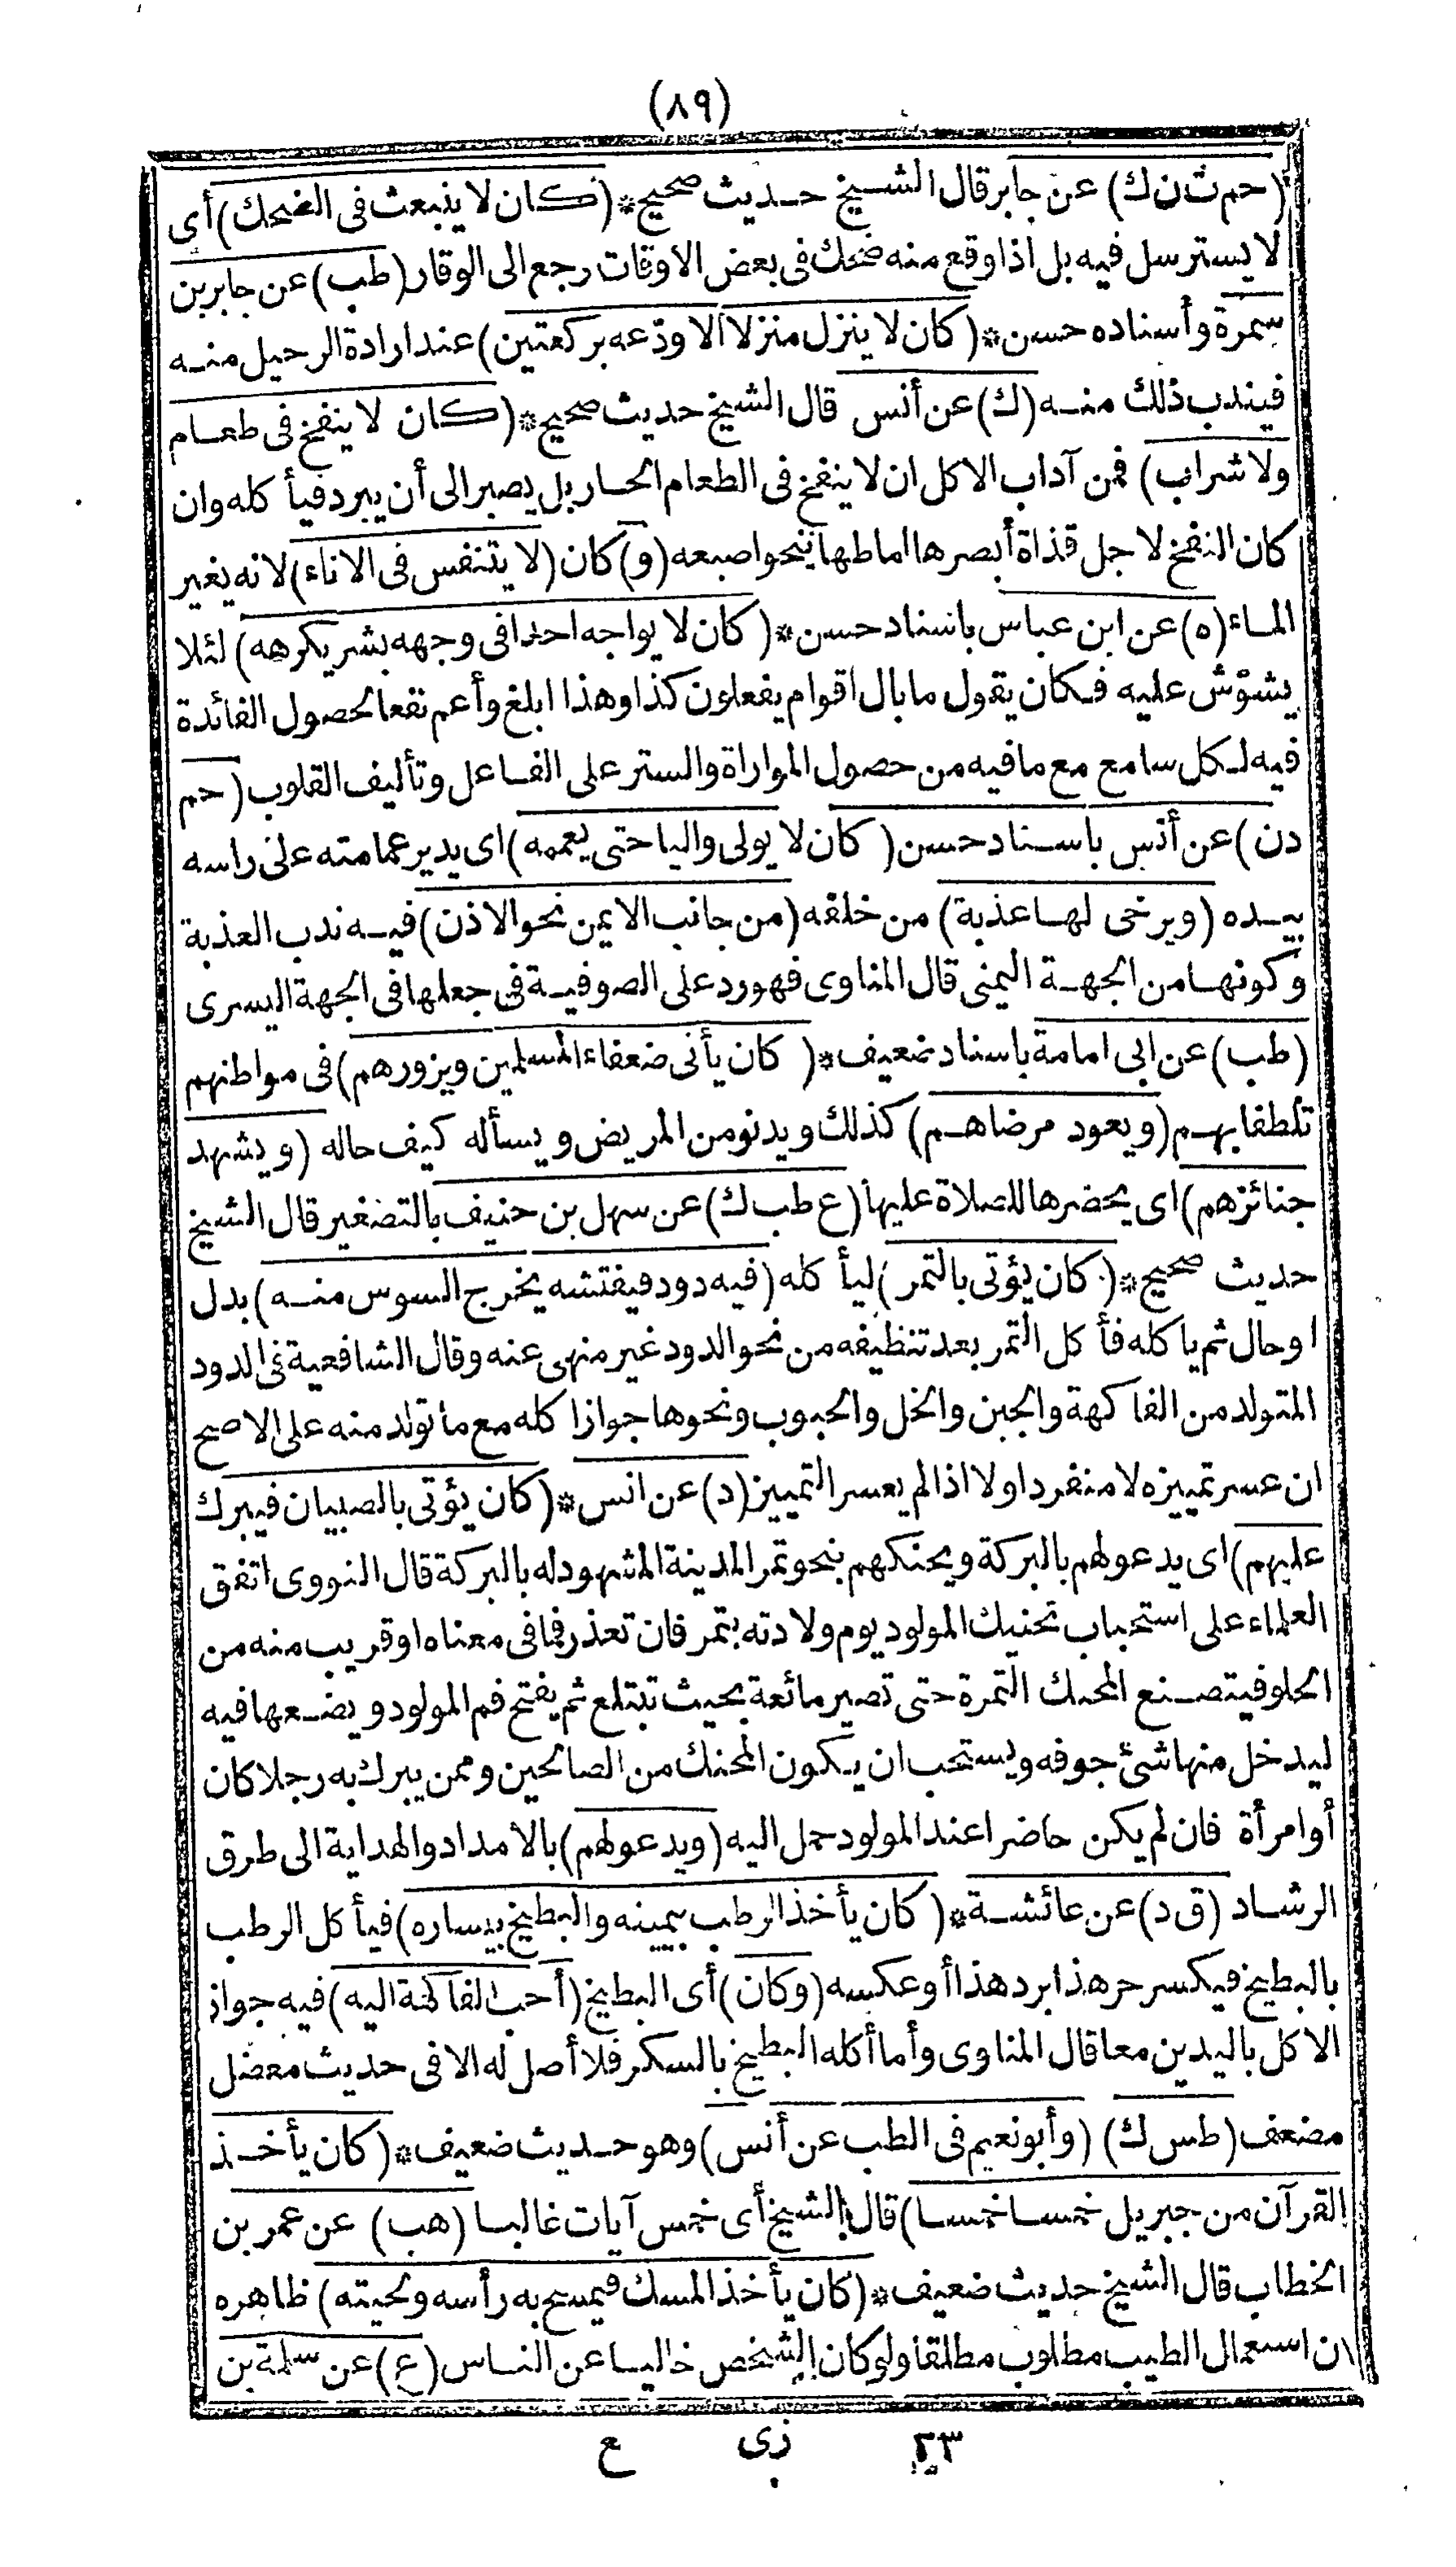 (٨٩)
(حم ت ن ك) عن جابر قال الشيخ حديث صحيح * (كان لا ينبعث فى الضحك) أى
لا يسترسل فيه بل اذا وقع منه ضحك فى بعض الاوقات رجع الى الوقار (طب) عن جابر بن
سمرة وأسناده حسن * (كان لا ينزل منزلا الا ودّعه بركعتين) عند ارادة الرحيل منه
فيندب ذلك منه (ك) عن أنس قال الشيخ حديث صحيح * (كان لا ينفخ فى طعام
ولا شراب) فمن آداب الاكل ان لا ينفخ فى الطعام الحار بل يصبر الى أن يبرد فيأكله وان
كان النفخ لاجل قذاة أبصرها اماطها بنحو اصبعه (و) كان (لا يتنفس فى الاناء) لانه يغير
الماء (ه) عن ابن عباس باسناد حسن * (كان لا يواجه احدا فى وجهه بشئ يكرهه) لئلا
يشوّش عليه فكان يقول ما بال اقوام يفعلون كذا وهذا ابلغ وأعم نفعا لحصول الفائدة
فيه لكل سامع مع ما فيه من حصول المواراة والستر على الفاعل وتأليف القلوب (حم
د ن) عن أنس باسناد حسن (كان لا يولى واليا حتى يعممه) اى يدير عمامته على راسه
بيده (ويرخى لها عذبة) من خلفه (من جانب الايمن نحو الاذن) فيه ندب العذبة
وكونها من الجهة اليمنى قال المناوى فهو رد على الصوفية فى جعلها فى الجهة اليسرى
(طب) عن ابى امامة باسناد ضعيف * (كان يأتى ضعفاء المسلمين ويزورهم) فى مواطنهم
تلطفا بهم (ويعود مرضاهم) كذلك ويدنو من المريض ويسأله كيف حاله (ويشهد
جنائزهم) اى يحضرها للصلاة عليها (ع طب ك) عن سهل بن حنيف بالتصغير قال الشيخ
حديث صحيح * (كان يؤتى بالتمر) ليأكله (فيه دود فيفتشه يخرج السوس منه) بدل
او حال ثم ياكله فأكل التمر بعد تنظيفه من نحو الدود غير منهى عنه وقال الشافعية فى الدود
المتولد من الفاكهة والجبن والخل والحبوب ونحوها جواز اكله مع ما تولد منه على الاصح
ان عسر تمييزه لا منفردا ولا اذا لم يعسر التمييز (د) عن انس * (كان يؤتى بالصبيان فيبرك
عليهم) اى يدعو لهم بالبركة ويحنكهم بنحو تمر المدينة المشهود له بالبركة قال النووى اتفق
العلماء على استحباب تحنيك المولود يوم ولادته بتمر فان تعذر فما فى معناه او قريب منه من
الحلو فيتصنع المحنك التمرة حتى تصير مائعة بحيث تبتلع ثم يفتح فم المولود ويضعها فيه
ليدخل منها شئ جوفه ويستحب ان يكون المحنك من الصالحين وممن يبرك به رجلا كان
أو امرأة فان لم يكن حاضرا عند المولود حمل اليه (ويدعو لهم) بالامداد والهداية الى طرق
الرشاد (ق د) عن عائشة * (كان يأخذ الرطب بيمينه والبطيخ بيساره) فيأكل الرطب
بالبطيخ فيكسر حر هذا برد هذا أو عكسه (وكان) أى البطيخ (أحب الفاكهة اليه) فيه جواز
الاكل باليدين معا قال المناوى وأما أكله البطيخ بالسكر فلا أصل له الا فى حديث معضل
مضعف (طس ك) (وأبو نعيم فى الطب عن أنس) وهو حديث ضعيف * (كان يأخذ
القرآن من جبريل خمسا خمسا) قال الشيخ أى خمس آيات غالبا (هب) عن عمر بن
الخطاب قال الشيخ حديث ضعيف * (كان يأخذ المسك فيمسح به رأسه ولحيته) ظاهره
ان استعمال الطيب مطلوب مطلقا ولو كان الشخص خاليا عن الناس (ع) عن سلمة بن
٢٣ زى ع